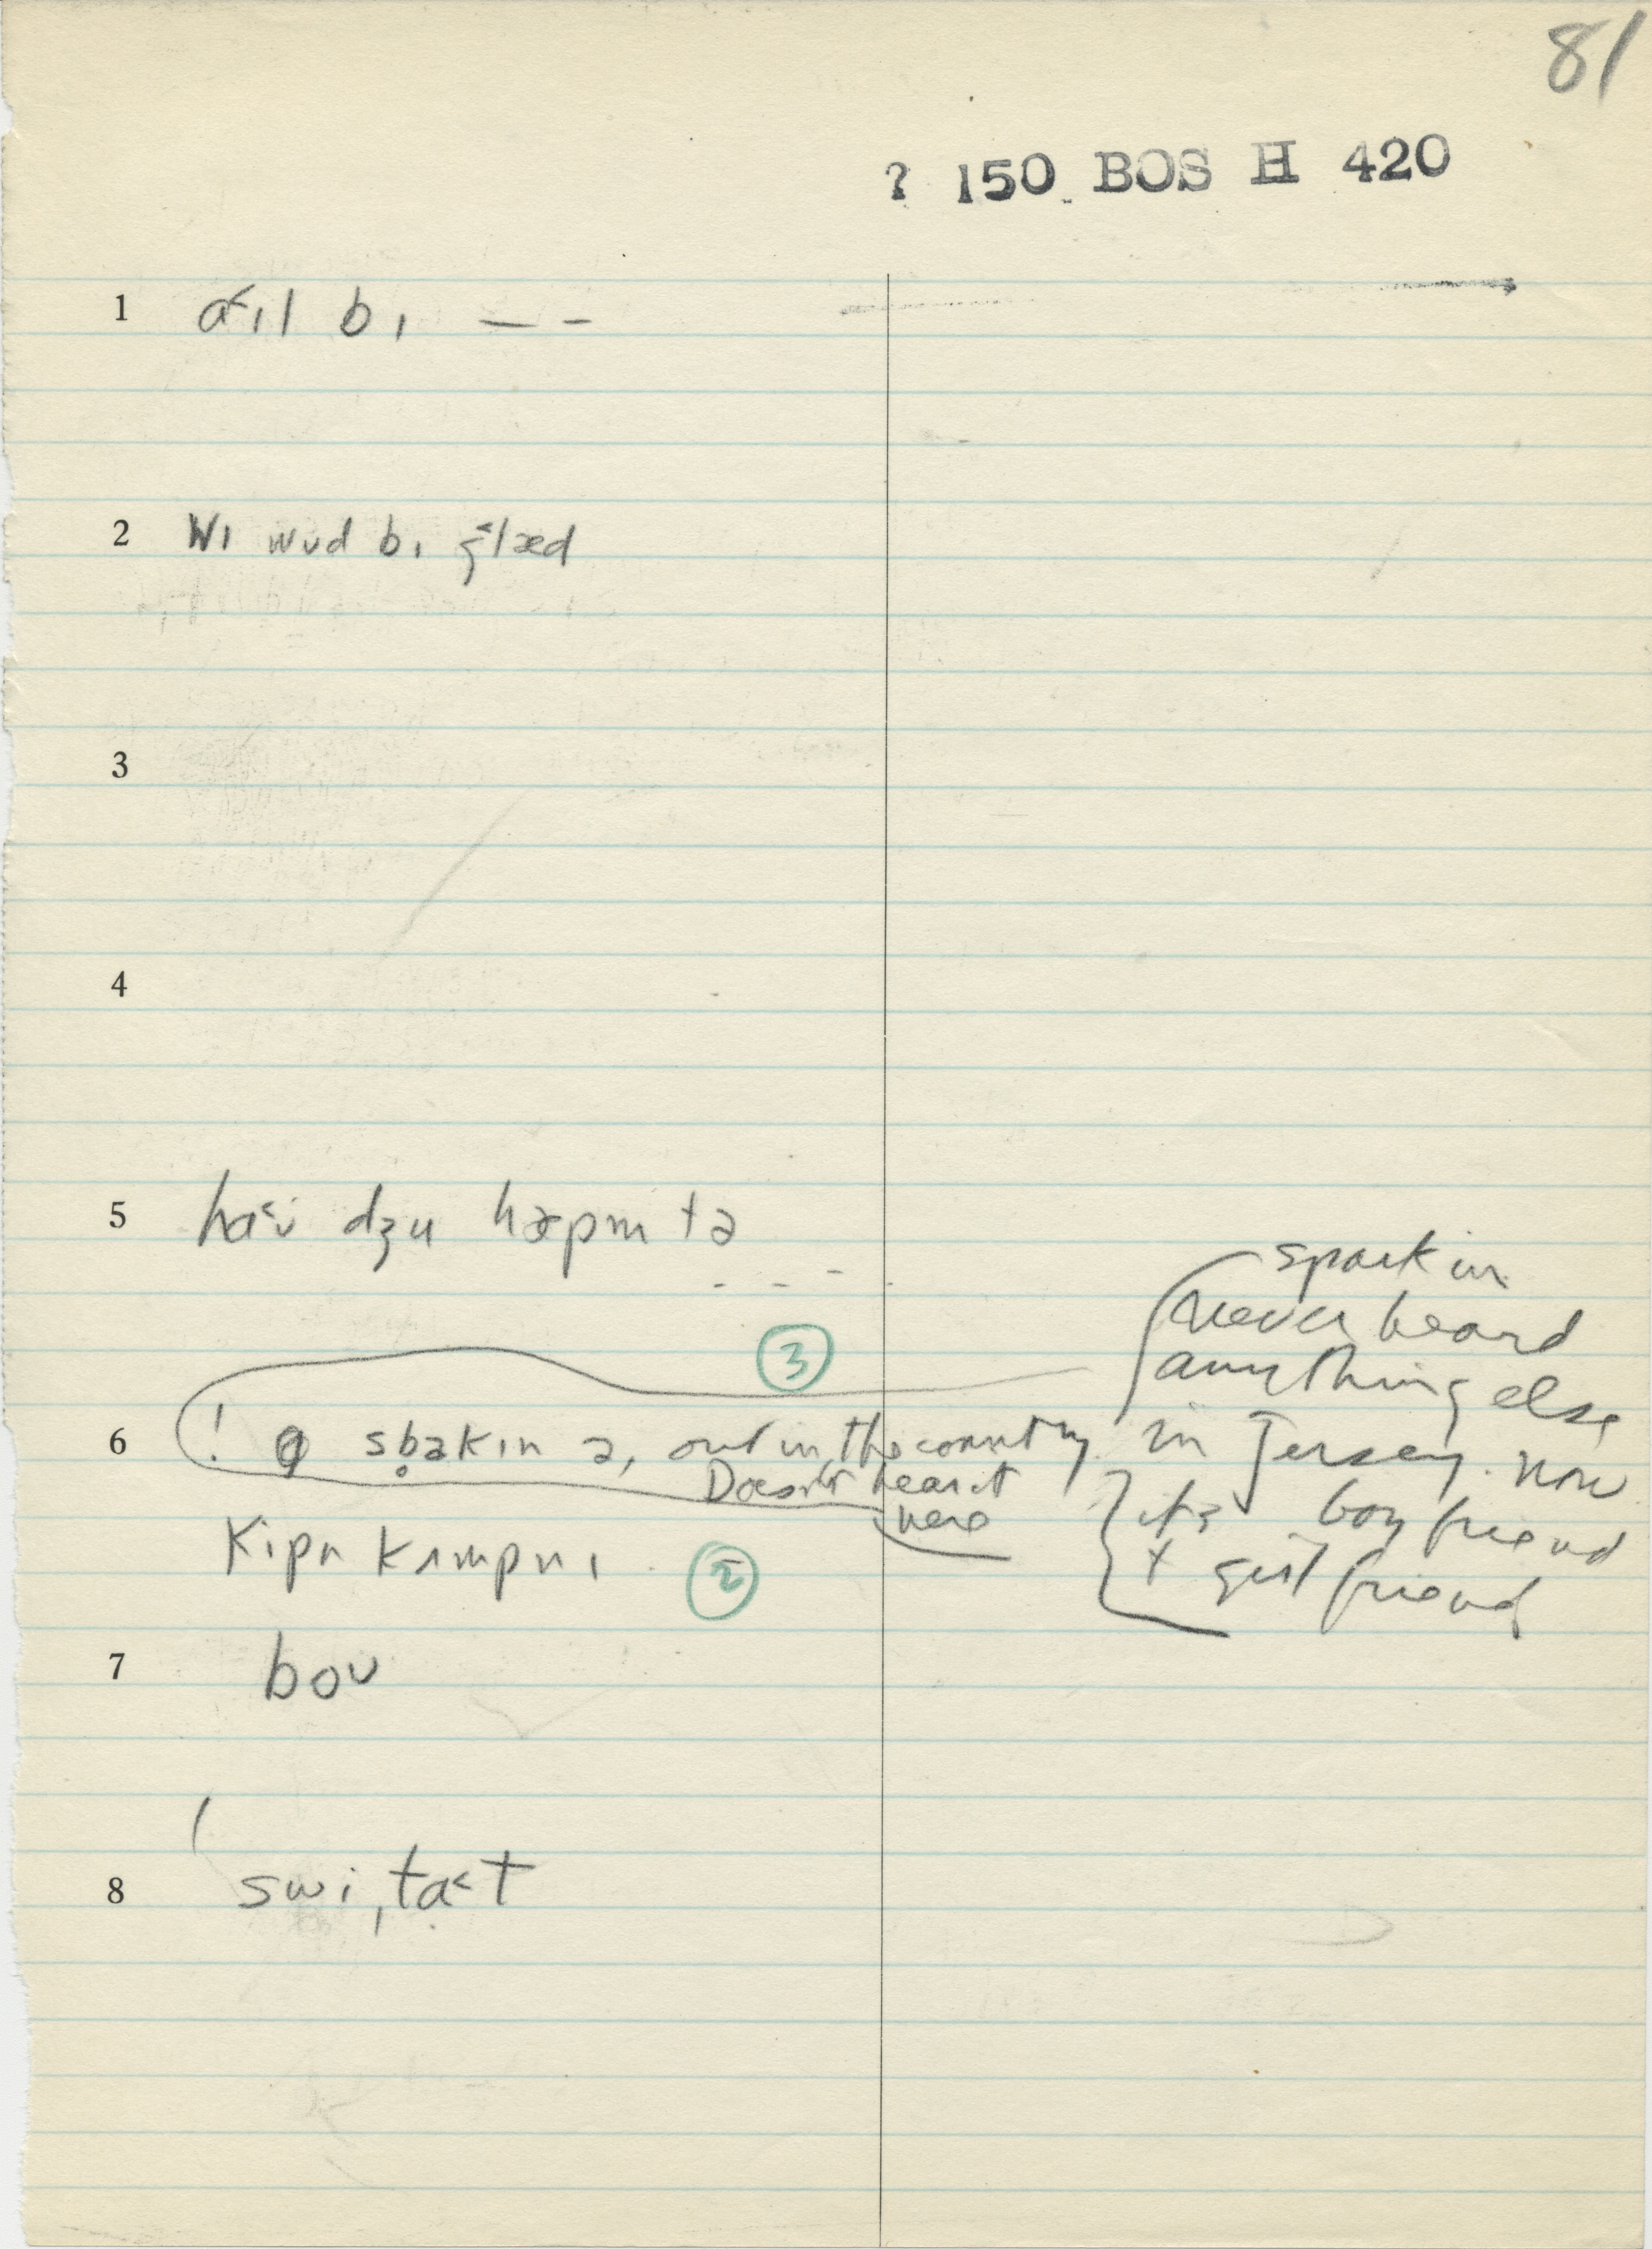 81
? 150 BOS H 420
1 a˂ɪl bɪ – –
2 wɪ wʊd bɪ g˂læd
3
4
5 ha˂ʊ dʒu hæpm tə
- - -
sparkin
never heard
③
anything else
6 ! sb̥akɪn ə, out in the country in Jersey. now
Doesn't hear it
here
it's boy friend
kipn kʌmpnɪ ②
+ girl friend
7 boʊ
8 swiˌta˂t